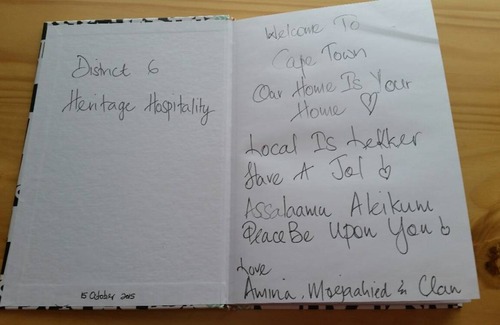 District 6
Heritage Hospitality
15 October 2015
Welcome To
Cape Town
Our Home Is Your
Home ♡
Local Is Lekker
Have A Jol ♡
Assalaamu Aleikum
Peace Be Upon You ♡
Love
Amina, & Clan